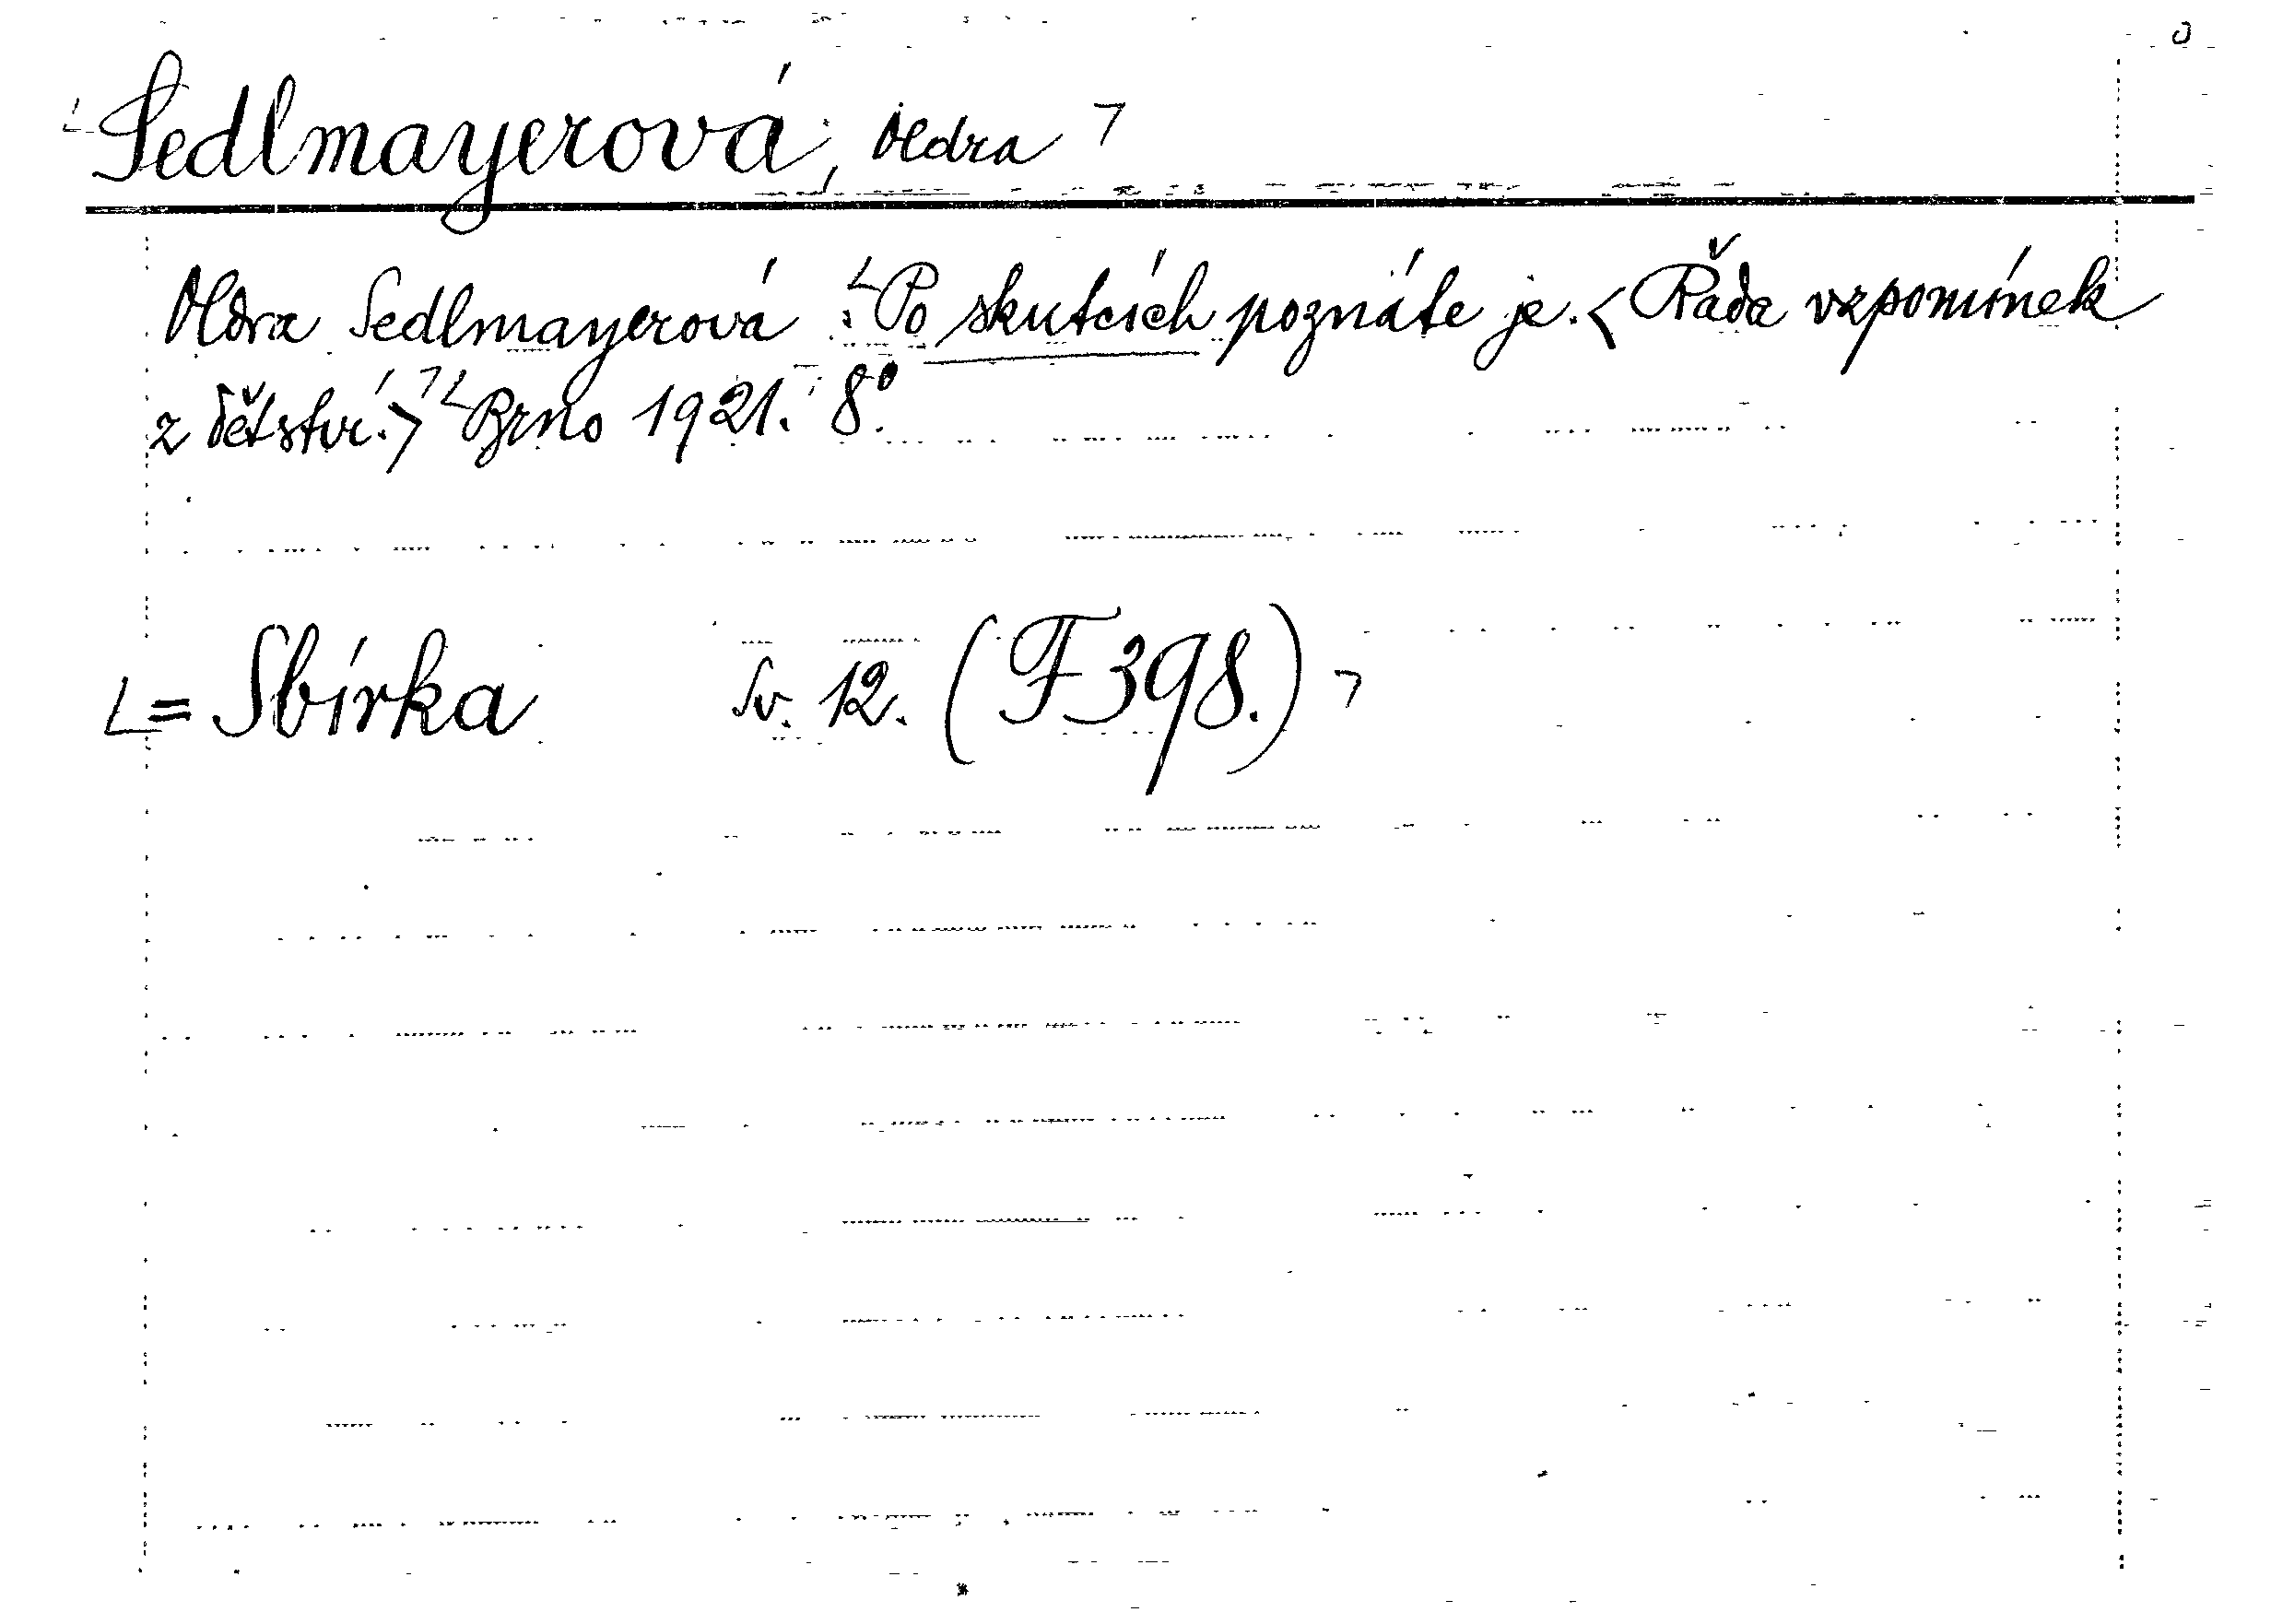 Sedlmayerová, Oldra
Oldra Sedlmayerová : Po skutcích poznáte je. < Řada vzpomínek
z dětství. > Brno 1921. 8°.
= Sbírka Sv. 12. (F 398.)